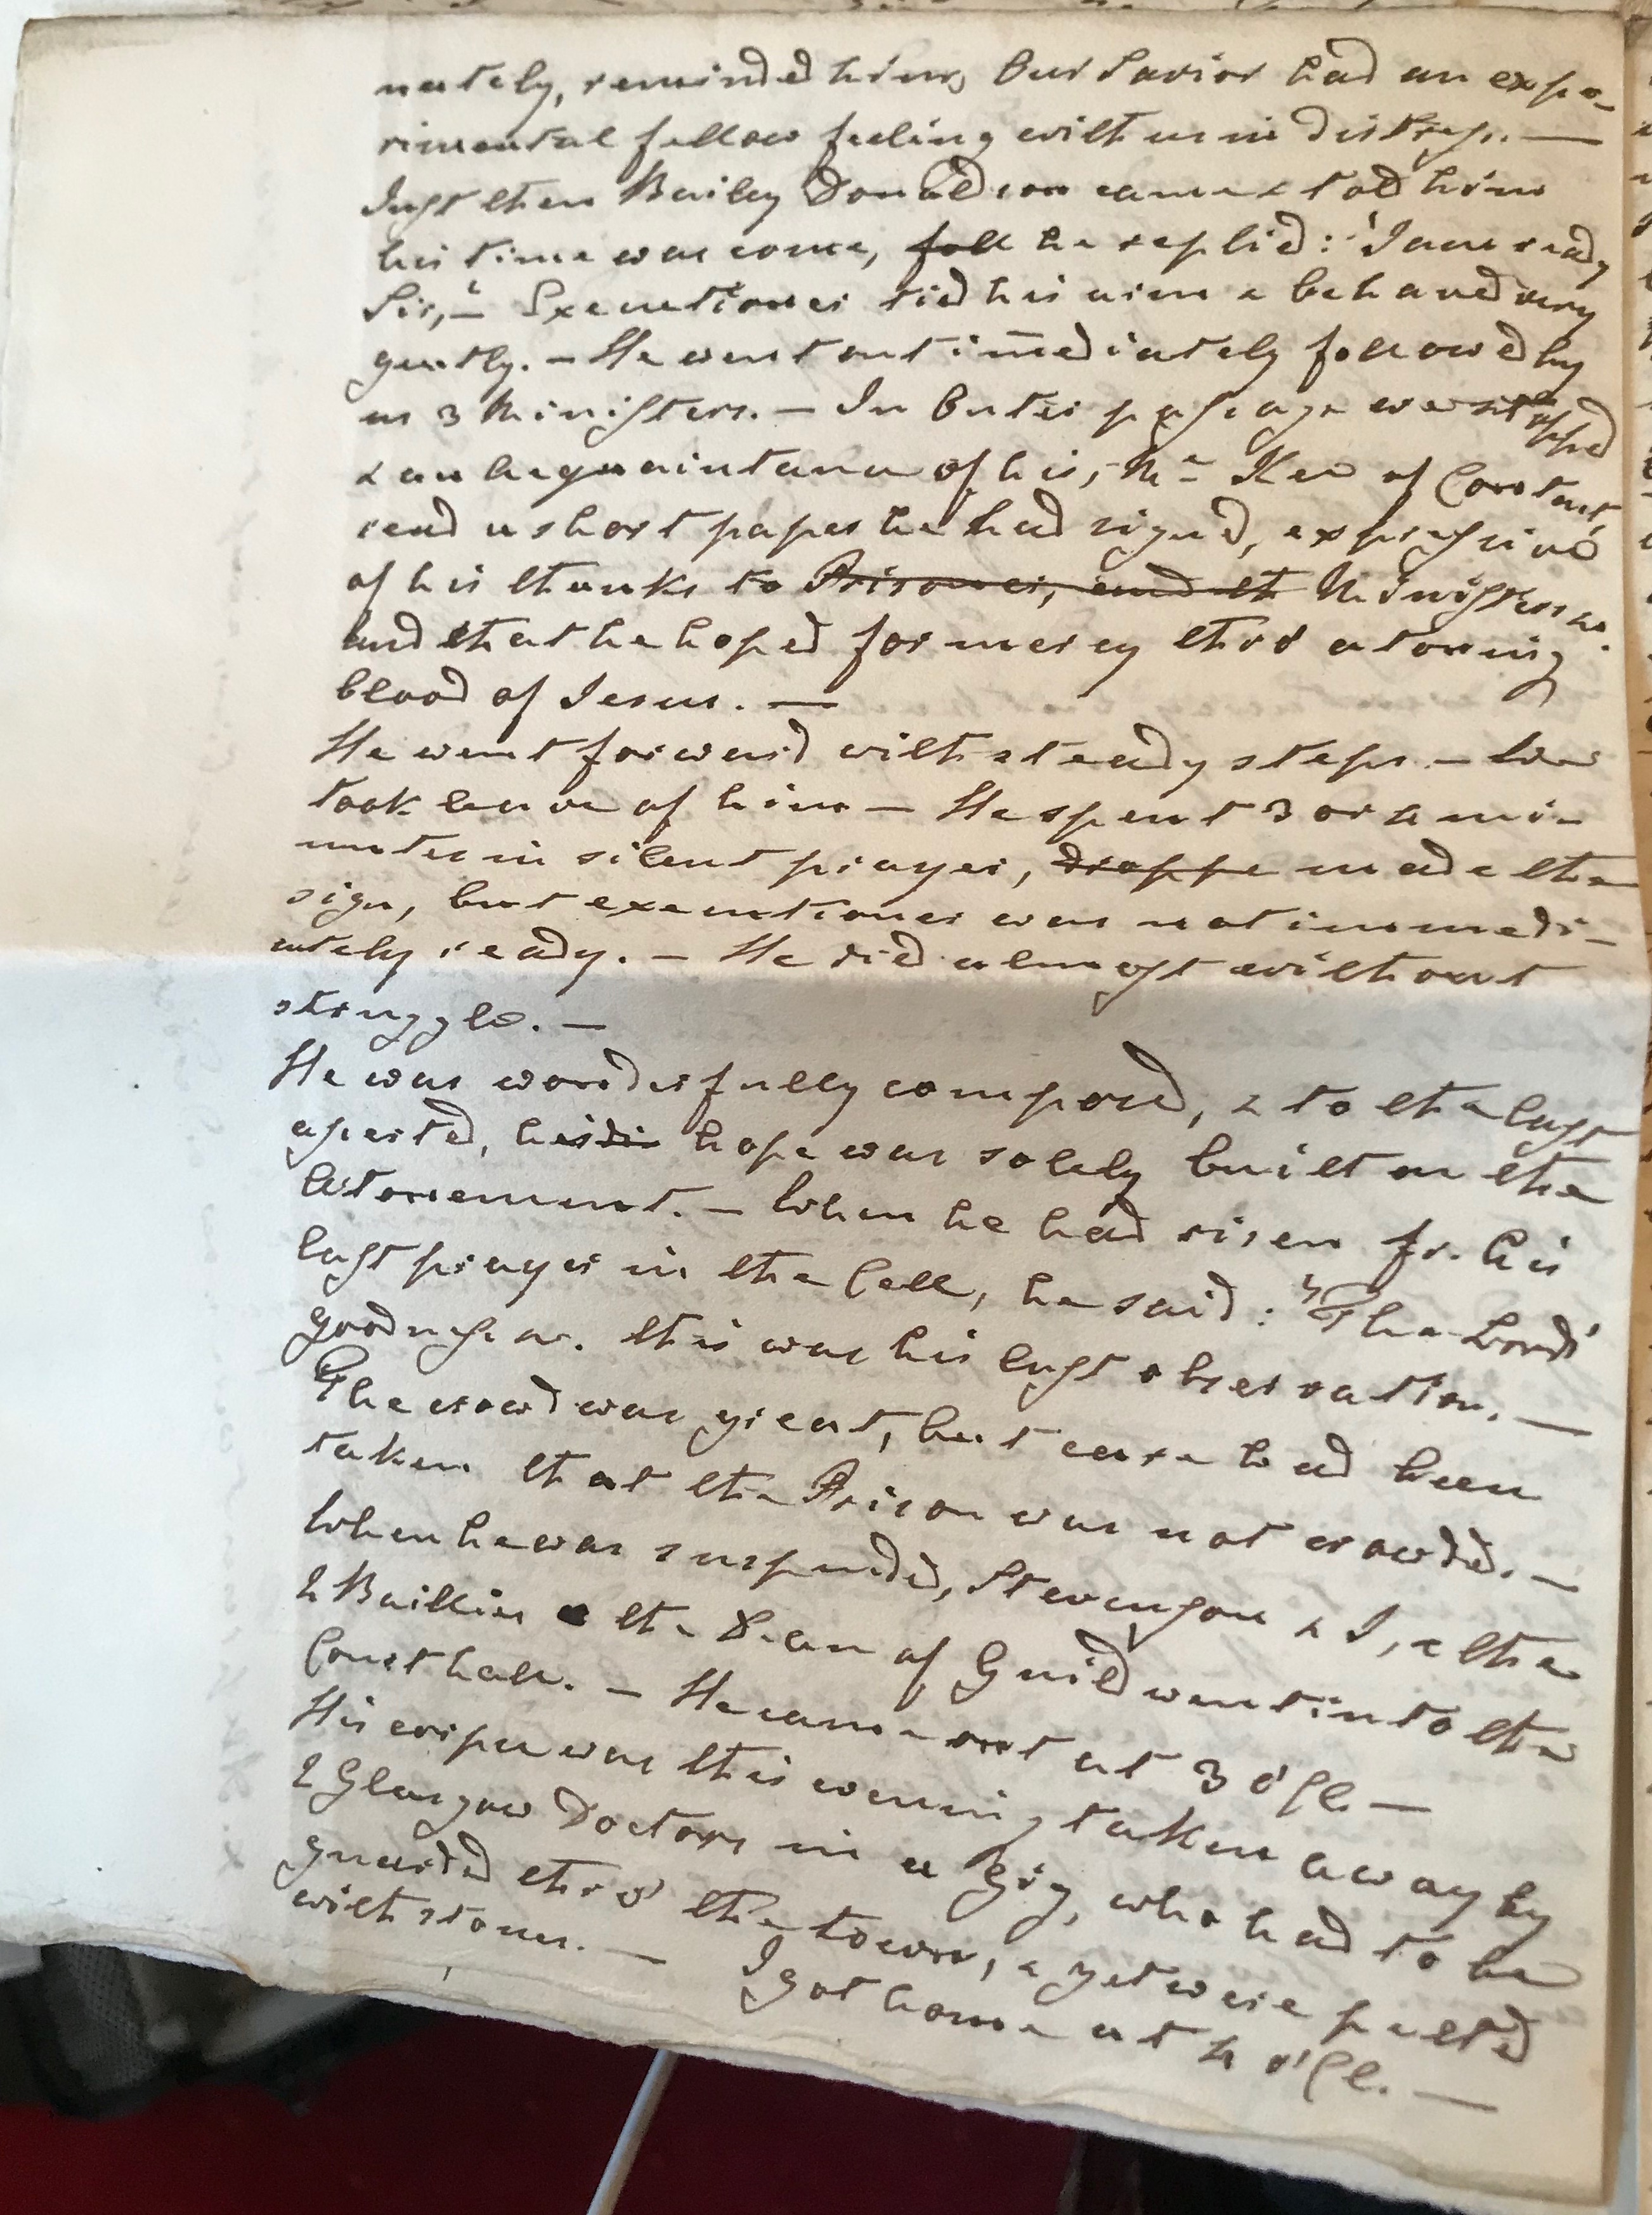 nately, reminded him, Our Savior had an expe-
rimental fellow feeling with us in distress. —
Just then Bailey Donaldson came & told him
his time was come, he replied: 'I am ready
Sir,' — Executioner tied his arms & behaved very
gently. — He went out immediately followed by
us 3 Ministers. — In Outer passage we stopped
& an Acquaintance of his, Mr Ker of
read a short paper he had signed, expressive
of his thanks to Prisoner, and th Ministers &c.
And that he hoped for mercy thro' atoning
blood of Jesus. —
He went forward with steady steps. — We
took leave of him — He spent 3 or 4 mi-
nutes in silent prayer, droppe made the
sign, but executioner was not immedi-
ately ready. — He died almost without
struggle. —
He was wonderfully composed, & to the last
asserted, his hope was solely built on the
Atonement. — When he had risen fr. his
last prayer in the Cell, he said: "The Lord's
goodness &c. this was his last observation. —
The crowd was great, but care had been
taken that the Prison was not crowded. —
When he was suspended, Stevenson & I, & the
2 Baillies & the Dean of Guild went into the
Court hall. — He came out at 3 o'Cl. —
His corpse was this evening taken away by
2 Glasgow Doctors in a Gig, who had to be
guarded thro' the town, & yet were pelted
with stones. — I got home at 4 o'Cl. —